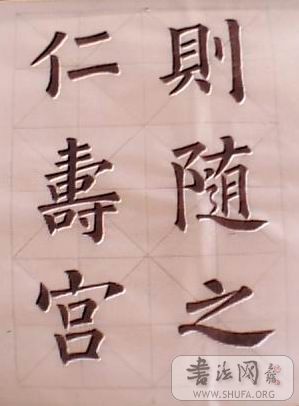 則随之
仁壽宮
书法网
WWW.SHUFA.ORG